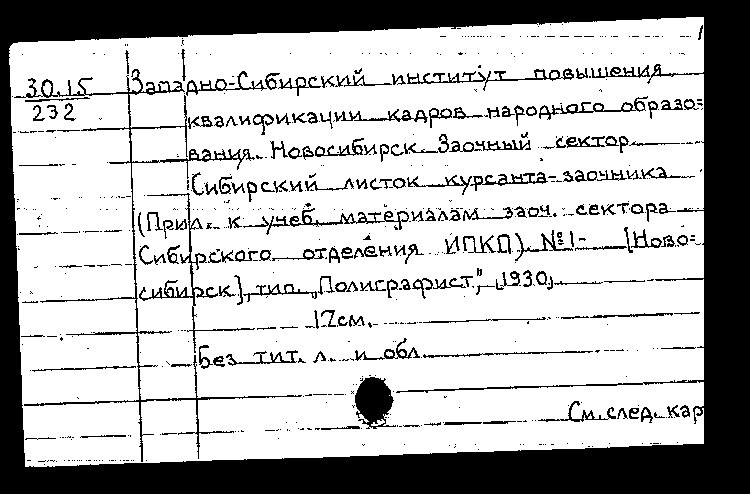 30.15
232
Западно-Сибирский институт повышения
квалификации кадров народного образо=
вания. Новосибирск. Заочный сектор.
Сибирский листок курсанта-заочника
(Прил. к учеб. материалам заоч. сектора
Сибирского отделения ИПКП). №1- [Ново=
сибирск], тип. „Полиграфист", 1930,
17см.
Без тит. л. и обл.
См. след. кар